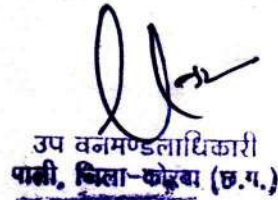 उप वनमण्डलाधिकारी
पाली, जिला-कोरबा (छ.ग.)